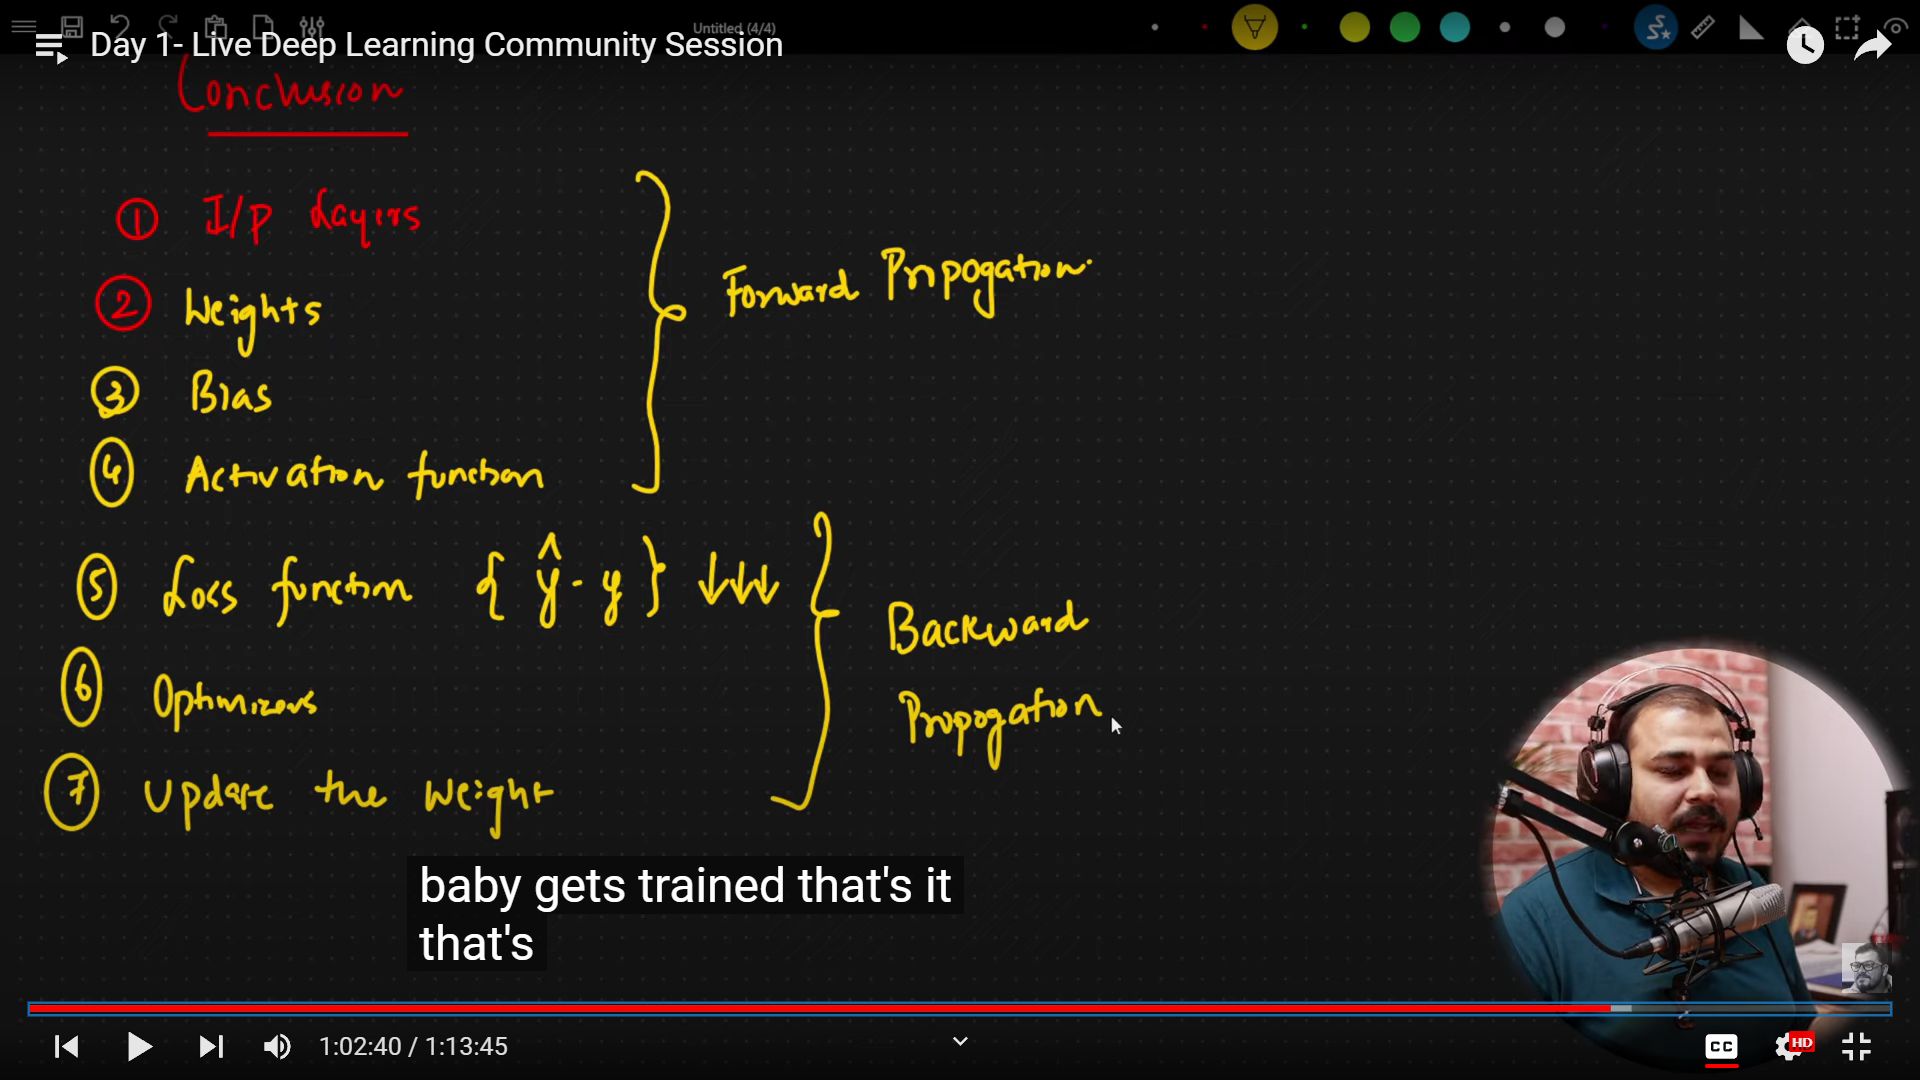 Untitled (4/4)
Day 1- Live Deep Learning Community Session
Conclusion
① I/p Layers
② Weights
③ Bias
④ Activation function
Forward Propogation
⑤ Loss function { ŷ - y } ↓↓↓
⑥ Optimizers
⑦ Update the weight
Backward
Propogation
baby gets trained that's it
that's
1:02:40 / 1:13:45
CC
HD